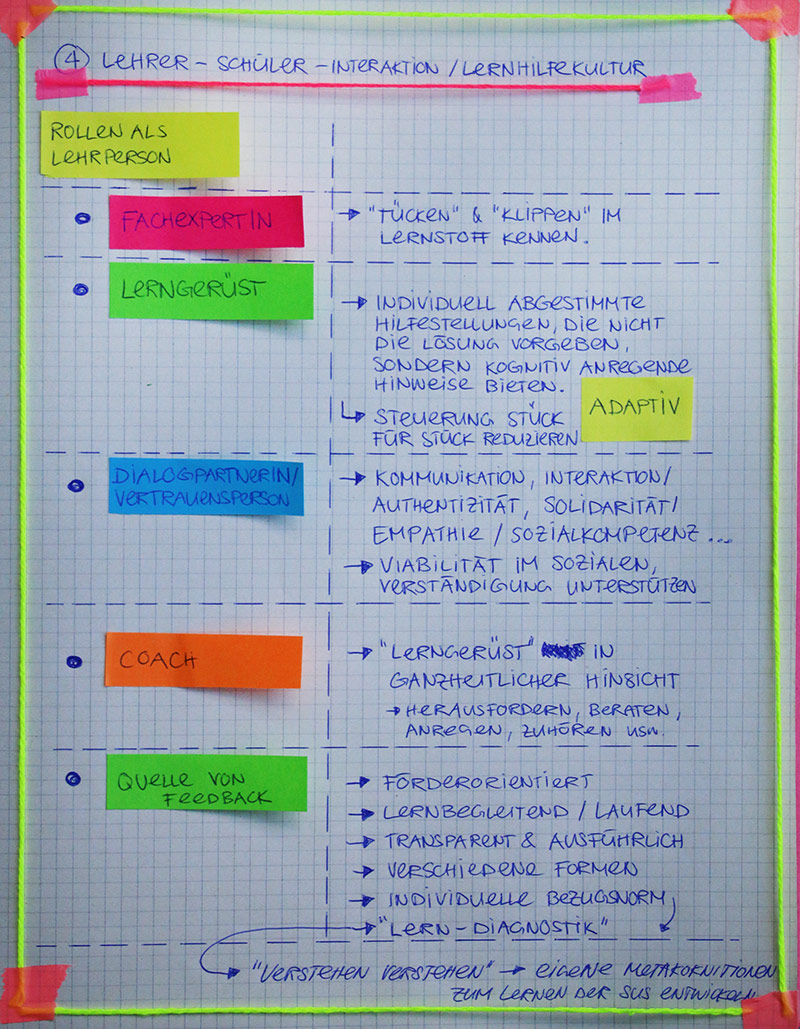 ④ LEHRER - SCHÜLER - INTERAKTION / LERNHILFEKULTUR
ROLLEN ALS
LEHRPERSON
• FACHEXPERTIN
→ "TÜCKEN" & "KLIPPEN" IM
LERNSTOFF KENNEN.
• LERNGERÜST
→ INDIVIDUELL ABGESTIMMTE
HILFESTELLUNGEN, DIE NICHT
DIE LÖSUNG VORGEBEN,
SONDERN KOGNITIV ANREGENDE
HINWEISE BIETEN.
↳ STEUERUNG STÜCK
FÜR STÜCK REDUZIEREN
ADAPTIV
• DIALOGPARTNERIN/
VERTRAUENSPERSON
→ KOMMUNIKATION, INTERAKTION/
AUTHENTIZITÄT, SOLIDARITÄT/
EMPATHIE / SOZIALKOMPETENZ ...
→ VIABILITÄT IM SOZIALEN,
VERSTÄNDIGUNG UNTERSTÜTZEN
• COACH
→ "LERNGERÜST" IN
GANZHEITLICHER HINSICHT
→ HERAUSFORDERN, BERATEN,
ANREGEN, ZUHÖREN USW.
• QUELLE VON
FEEDBACK
→ FÖRDERORIENTIERT
→ LERNBEGLEITEND / LAUFEND
→ TRANSPARENT & AUSFÜHRLICH
→ VERSCHIEDENE FORMEN
→ INDIVIDUELLE BEZUGSNORM
→ "LERN-DIAGNOSTIK"
→ "VERSTEHEN VERSTEHEN" → EIGENE METAKOKNITIONEN
ZUM LERNEN DER SUS ENTWICKELN